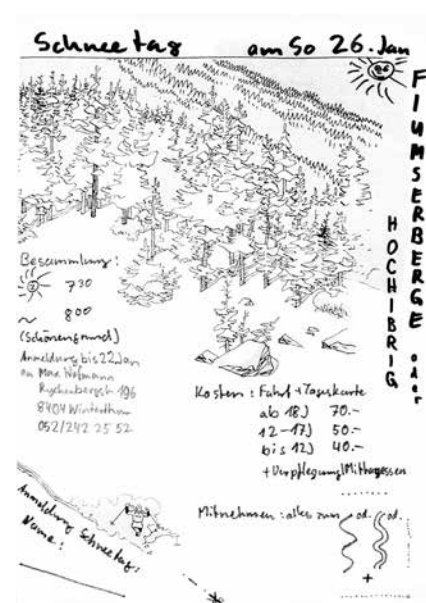 Schneetag am So 26. Jan
FLUMSERBERGE oder
HOCHIBRIG
Besammlung:
7 30
~ 8 00
(Schönengrund)
Anmeldung bis 22 Jan
an Max
Rychenbergstr 196
8404 Winterthur
052/242 25 52
Kosten: Fahrt + Tageskarte
ab 18J 70.-
12-17J 50.-
bis 12J 40.-
+ Verpflegung/Mittagessen
Mitnehmen: alles zum od. od.
+
Anmeldung Schneetag:
Name: